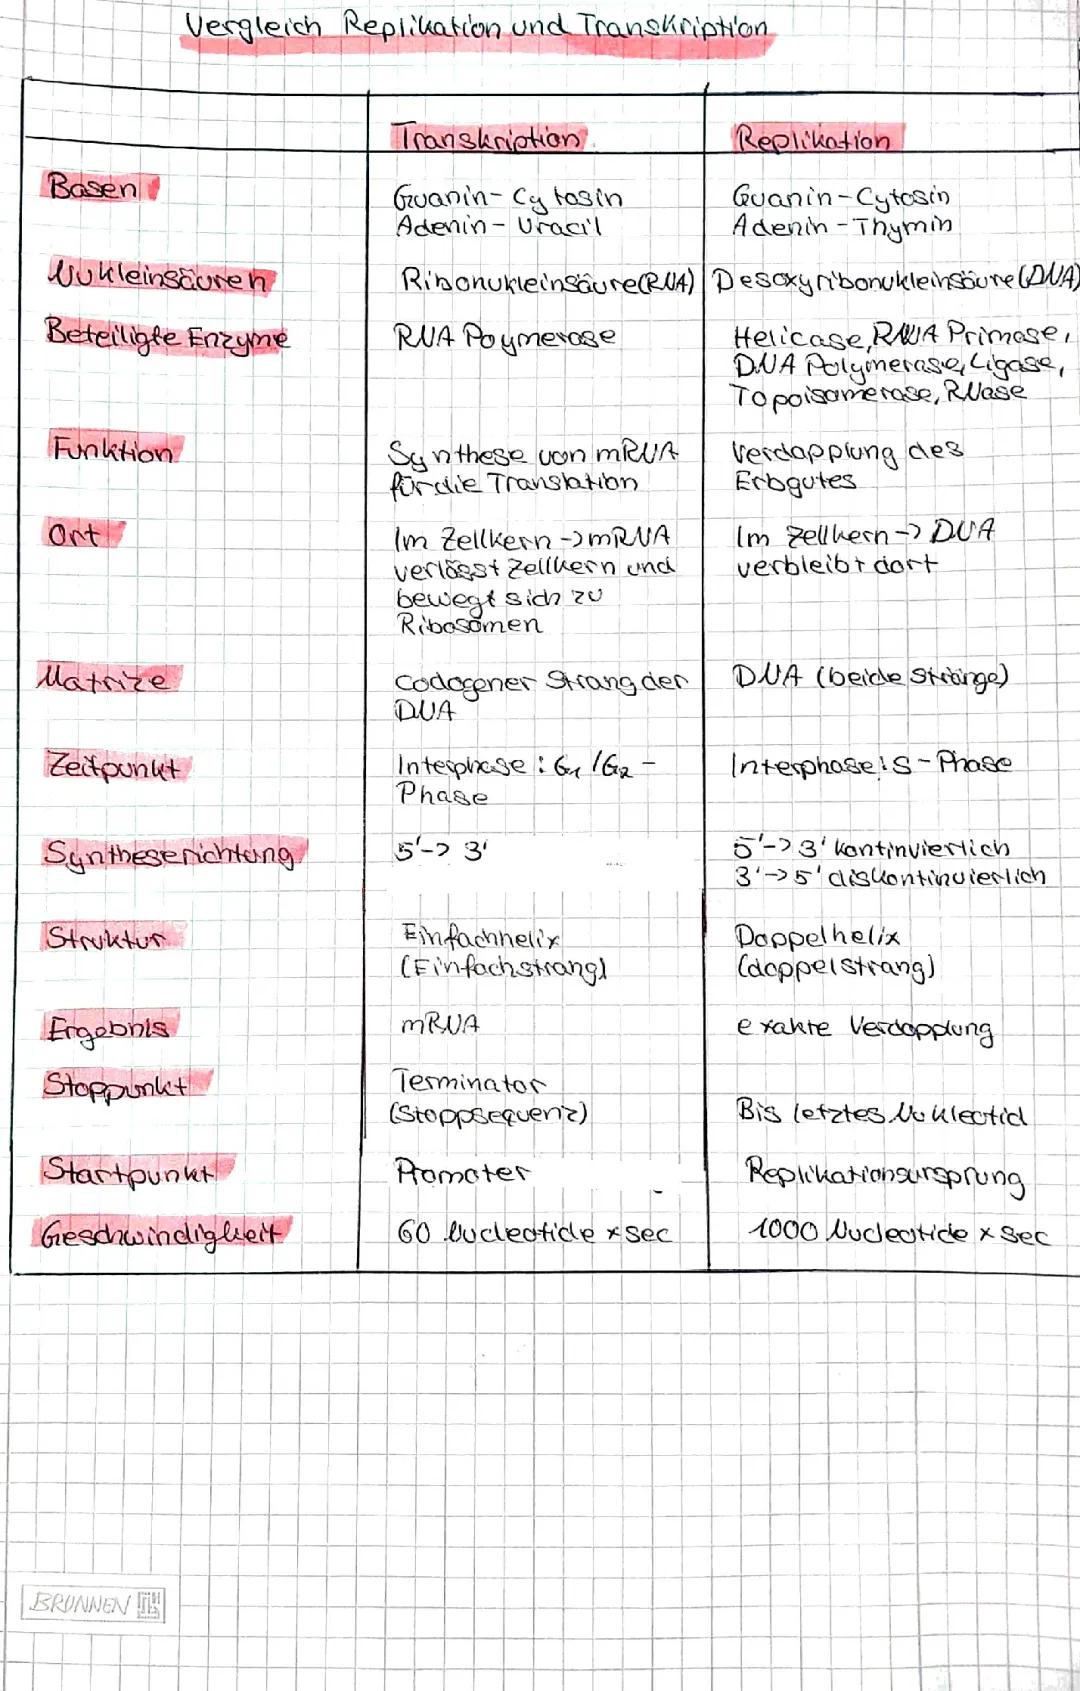 Vergleich Replikation und Transkription
Transkription Replikation
Basen Guanin-Cytosin Guanin-Cytosin
Adenin-Uracil Adenin-Thymin
Nukleinsäuren Ribonukleinsäure(RNA) Desoxyribonukleinsäure(DNA)
Beteiligte Enzyme RNA Poymerase Helicase, RNA Primase,
DNA Polymerase, Ligase,
Topoisomerase, RNase
Funktion Synthese von mRNA Verdopplung des
für die Translation Erbgutes
Ort Im Zellkern -> mRNA Im Zellkern -> DNA
verlässt Zellkern und verbleibt dort
bewegt sich zu
Ribosomen
Matrize Codogener Strang der DNA (beide Stränge)
DNA
Zeitpunkt Interphase: G1/G2- Interphase: S-Phase
Phase
Syntheserichtung 5'-> 3' 5'-> 3' kontinuierlich
3'->5' diskontinuierlich
Struktur Einfachhelix Doppelhelix
(Einfachstrang) (doppelstrang)
Ergebnis mRNA exakte Verdopplung
Stoppunkt Terminator
(Stoppsequenz) Bis letztes Nukleotid
Startpunkt Promoter Replikationsursprung
Geschwindigkeit 60 Nucleotide x sec 1000 Nucleotide x sec
BRUNNEN